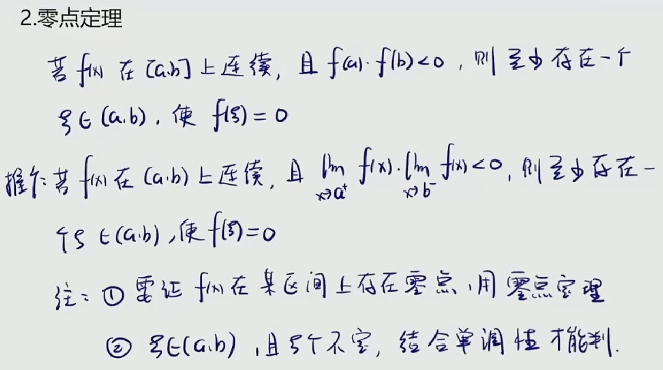 2.零点定理
若f(x)在[a,b]上连续,且f(a)·f(b)<0,则至少存在一个
ξ∈(a,b),使f(ξ)=0
推广:若f(x)在(a,b)上连续,且lim x→a⁺ f(x)·lim x→b⁻ f(x)<0,则至少存在一
个ξ∈(a,b),使f(ξ)=0
注:①要证f(x)在某区间上存在零点,用零点定理
②ξ∈(a,b),且ξ个不定,结合单调性才能判.